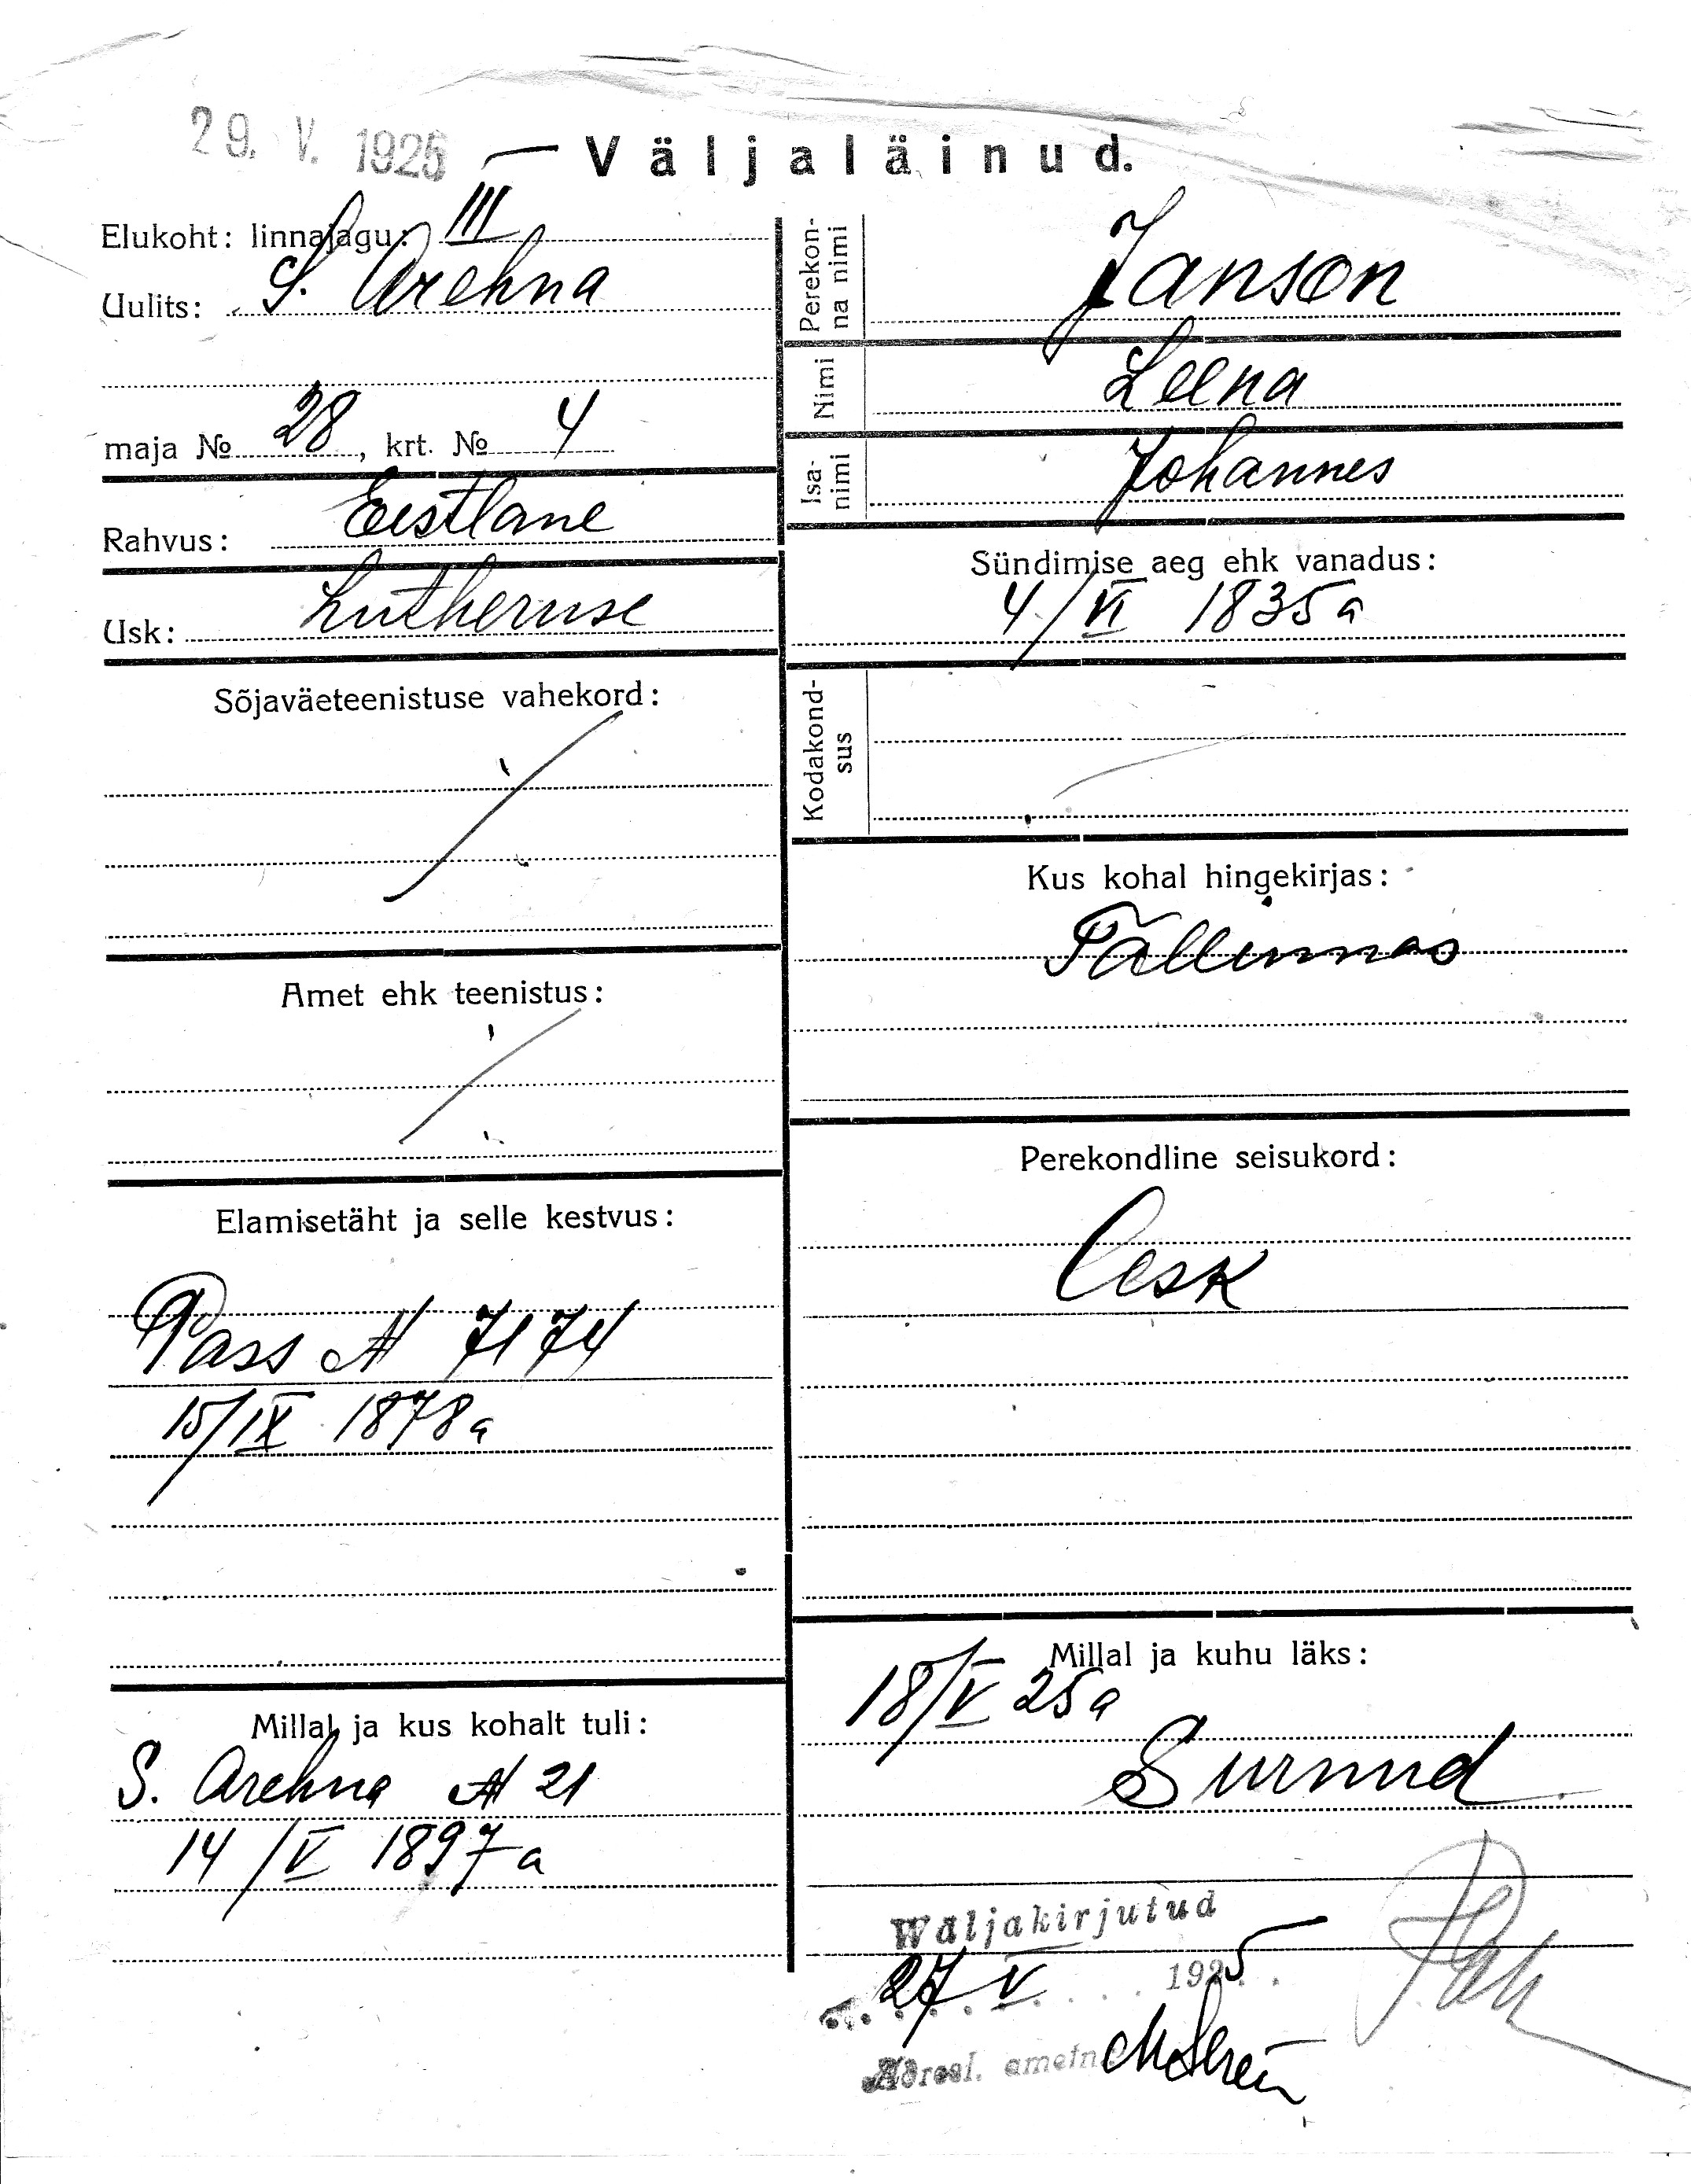 29. V. 1925
Väljaläinud.
Elukoht: linnajagu: III
Uulits: S. Arehna
maja № 28, krt. № 4
Rahvus: Eestlane
Usk: Lutheruse
Sõjaväeteenistuse vahekord:
Amet ehk teenistus:
Elamisetäht ja selle kestvus:
Pass № 7174
15/IX 1878 a
Millal ja kus kohalt tuli:
S. Arehna № 21
14/V 1897 a
Perekon-
na nimi
Janson
Nimi
Leena
Isa-
nimi
Johannes
Sündimise aeg ehk vanadus:
4/VI 1835 a
Kodakond-
sus
Kus kohal hingekirjas:
Tallinnas
Perekondline seisukord:
Lesk
Millal ja kuhu läks:
18/V 25 a
Surnud
Wäljakirjutud
27 V 1925
Adressl. ametn.